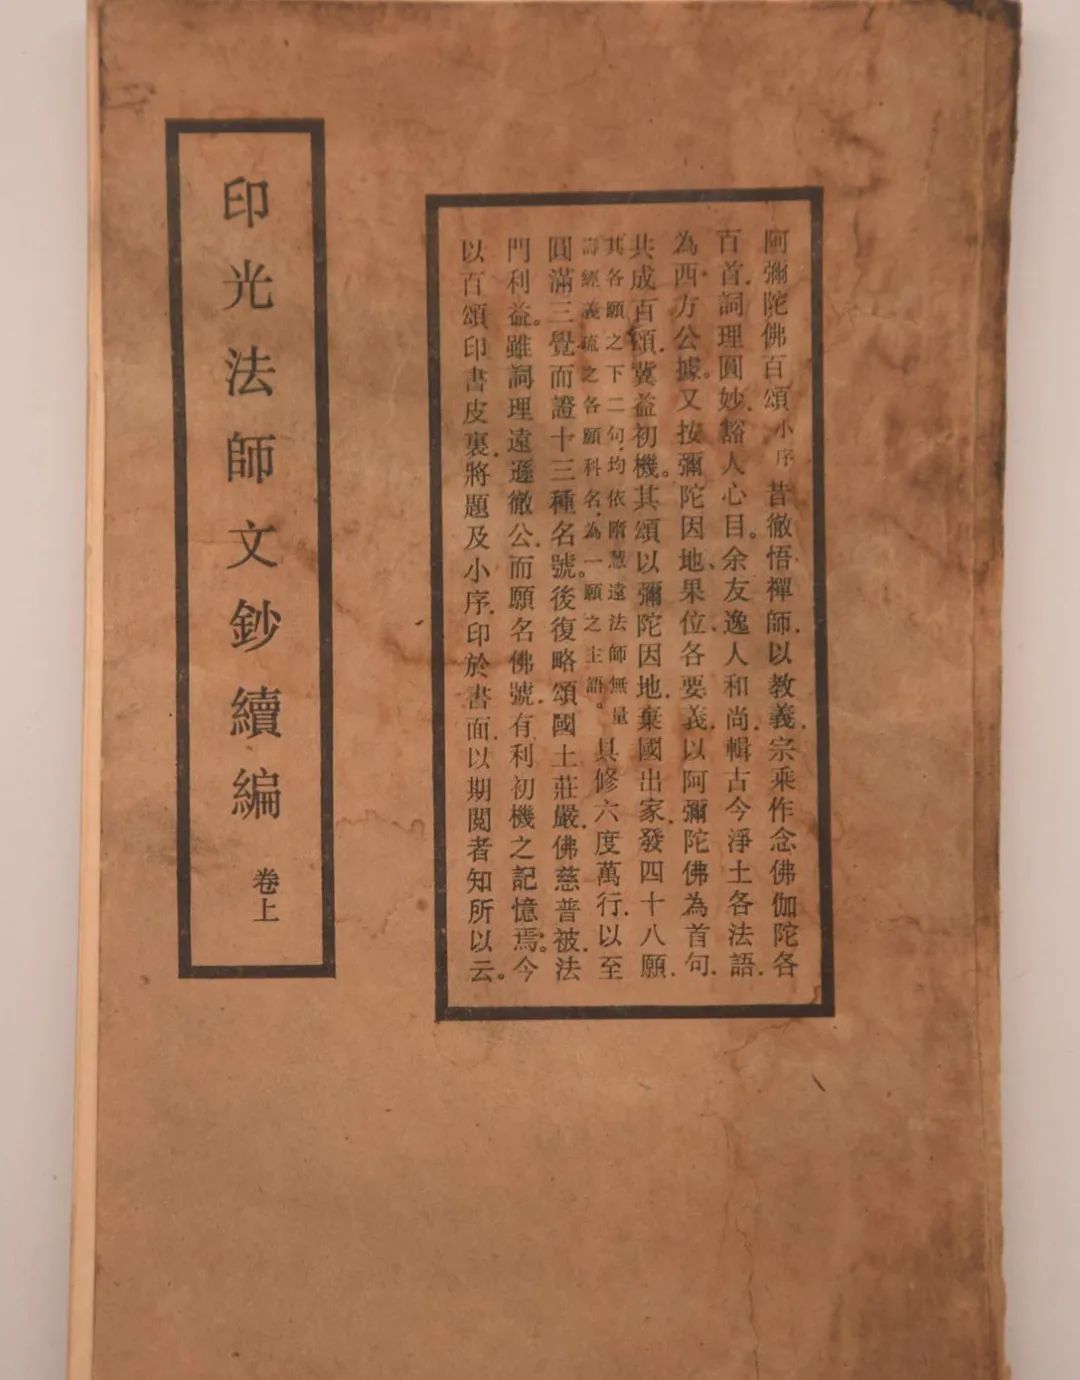 阿彌陀佛百頌小序 昔徹悟禪師.以教義宗乘作念佛伽陀各
百首.詞理圓妙.豁人心目。余友逸人和尚.輯古今淨土各法語.
為西方公據。又按彌陀因地、果位、各要義.以阿彌陀佛為首句.
共成百頌.冀益初機。其頌以彌陀因地.棄國出家.發四十八願.
其各願之下二句.均依隋慧遠法師無量
壽經義疏之各願科名.為一願之主語。具修六度萬行.以至
圓滿三覺.而證十三種名號.後復略頌國土莊嚴.佛慈普被.法
門利益。雖詞理遠遜徹公.而願名佛號.有利初機之記憶焉。今
以百頌印書皮裏.將題及小序.印於書面.以期閱者知所以云。
印光法師文鈔續編 卷上